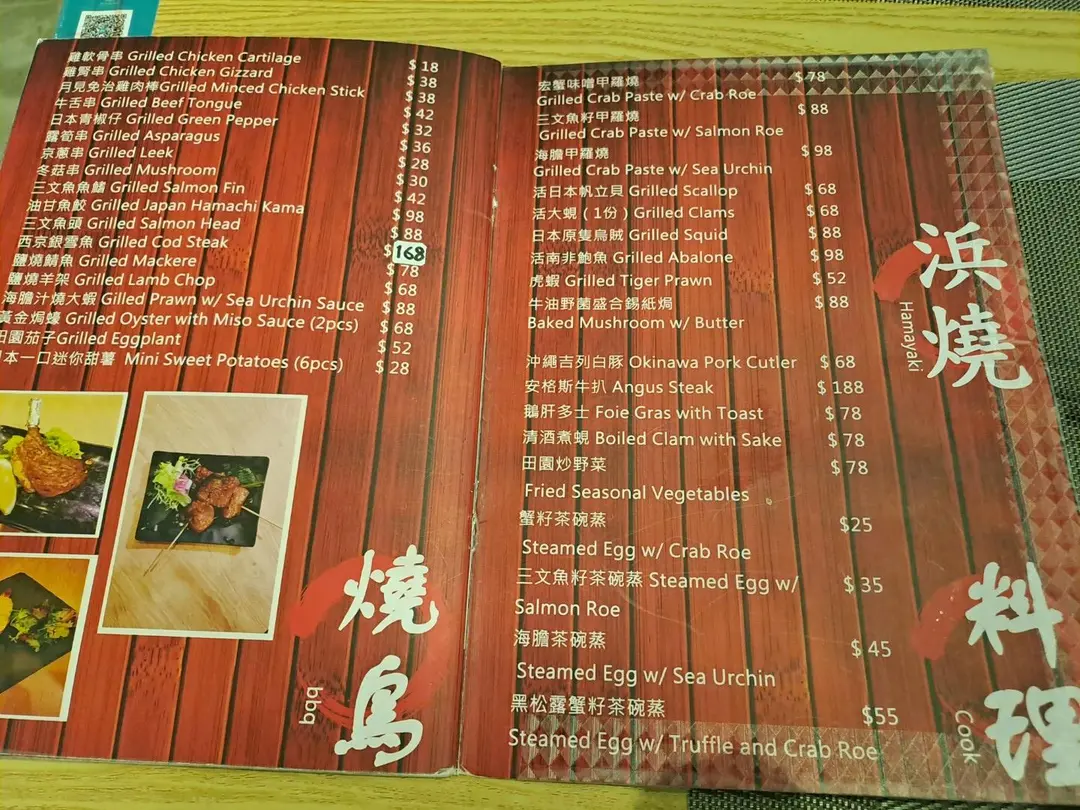 雞軟骨串 Grilled Chicken Cartilage $ 18
雞腎串 Grilled Chicken Gizzard $ 38
月見免治雞肉棒Grilled Minced Chicken Stick $ 38
牛舌串 Grilled Beef Tongue $ 42
日本青椒仔 Grilled Green Pepper $ 32
露荀串 Grilled Asparagus $ 36
京蔥串 Grilled Leek $ 28
冬菇串 Grilled Mushroom $ 30
三文魚魚鰭 Grilled Salmon Fin $ 42
油甘魚鮫 Grilled Japan Hamachi Kama $ 98
三文魚頭 Grilled Salmon Head $ 88
西京銀雪魚 Grilled Cod Steak $ 168
鹽燒鯖魚 Grilled Mackere $ 78
鹽燒羊架 Grilled Lamb Chop $ 68
海膽汁燒大蝦 Gilled Prawn w/ Sea Urchin Sauce $ 88
黃金焗蠔 Grilled Oyster with Miso Sauce (2pcs) $ 68
田園茄子Grilled Eggplant $ 52
日本一口迷你甜薯 Mini Sweet Potatoes (6pcs) $ 28
燒鳥
bbq
宏蟹味噌甲羅燒 $ 78
Grilled Crab Paste w/ Crab Roe
三文魚籽甲羅燒 $ 88
Grilled Crab Paste w/ Salmon Roe
海膽甲羅燒 $ 98
Grilled Crab Paste w/ Sea Urchin
活日本帆立貝 Grilled Scallop $ 68
活大蜆（1份）Grilled Clams $ 68
日本原隻烏賊 Grilled Squid $ 88
活南非鮑魚 Grilled Abalone $ 98
虎蝦 Grilled Tiger Prawn $ 52
牛油野菌盛合錫紙焗 $ 88
Baked Mushroom w/ Butter
浜燒
Hamayaki
沖繩吉列白豚 Okinawa Pork Cutler $ 68
安格斯牛扒 Angus Steak $ 188
鵝肝多士 Foie Gras with Toast $ 78
清酒煮蜆 Boiled Clam with Sake $ 78
田園炒野菜 $ 78
Fried Seasonal Vegetables
蟹籽茶碗蒸 $25
Steamed Egg w/ Crab Roe
三文魚籽茶碗蒸 Steamed Egg w/ $ 35
Salmon Roe
海膽茶碗蒸 $ 45
Steamed Egg w/ Sea Urchin
黑松露蟹籽茶碗蒸 $55
Steamed Egg w/ Truffle and Crab Roe
料理
Cook